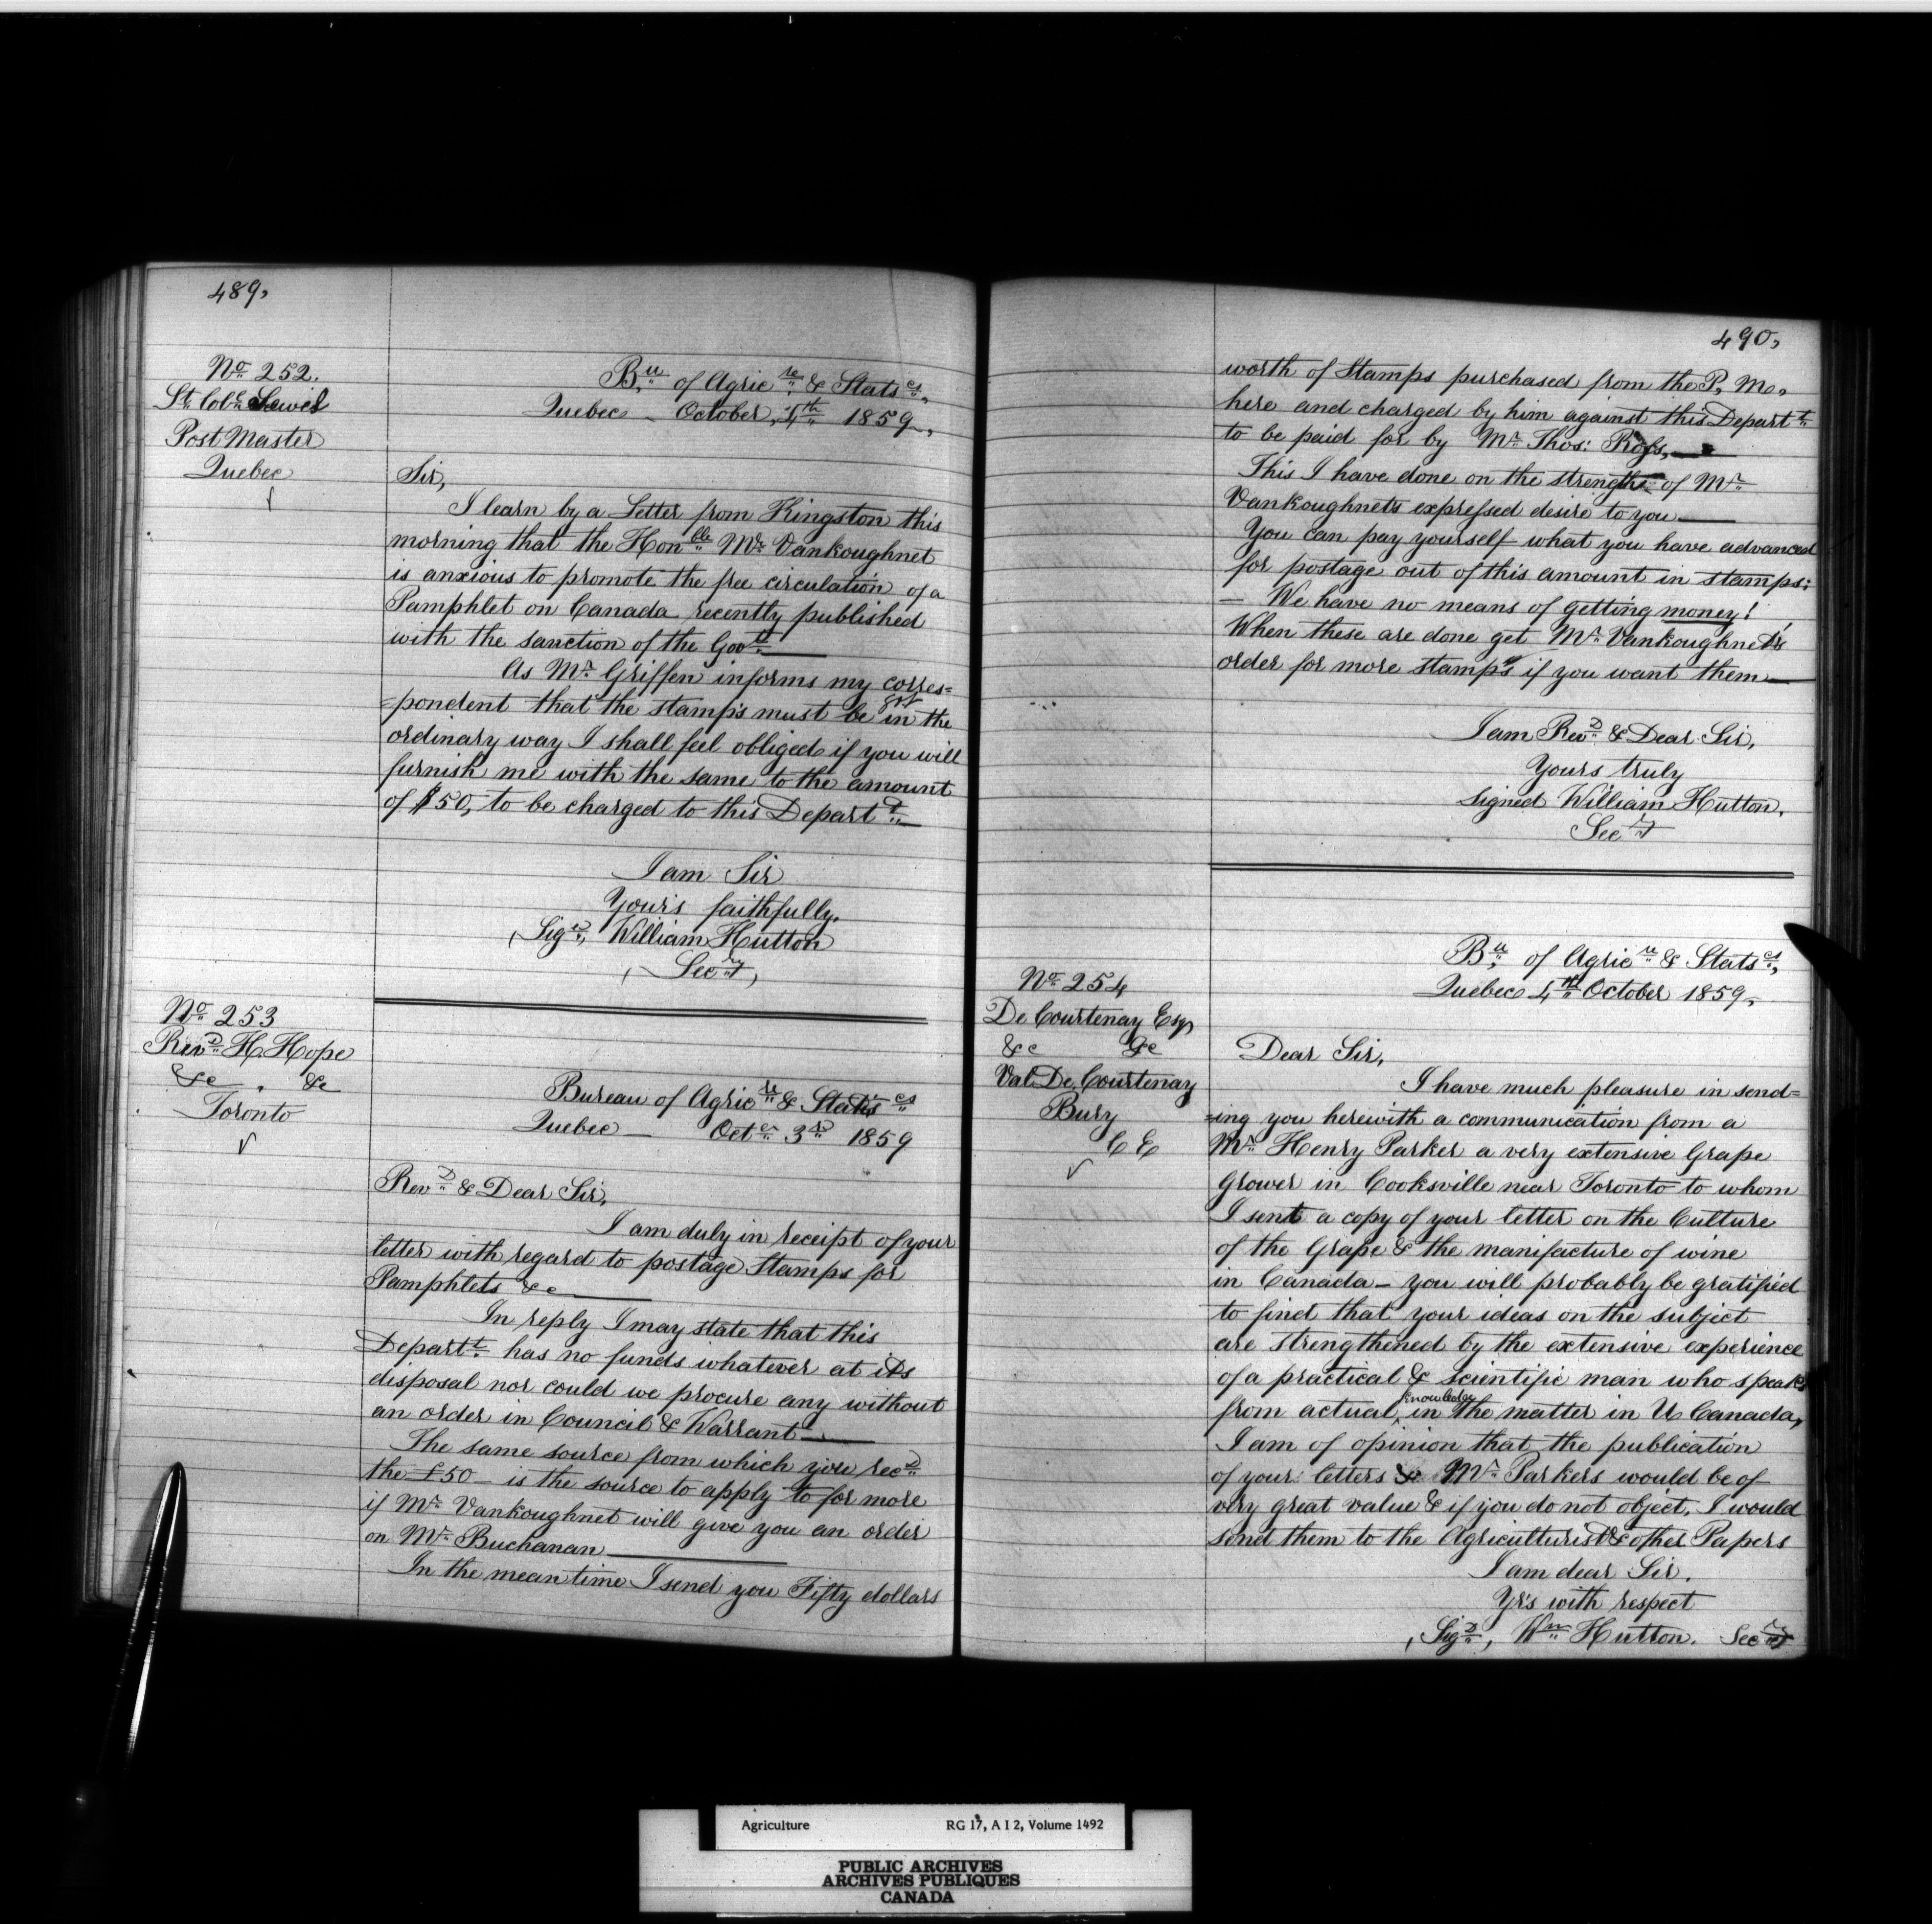 489,
No 252.
Lt Coll Sewel
Post Master
Quebec
Bu of Agricre & Statscs,
Quebec – October, 4th 1859,
Sir,
I learn by a Letter from Kingston this
morning that the Honble Mr Vankoughnet
is anxious to promote the free circulation of a
Pamphlet on Canada recently published
with the sanction of the Govt
As Mr Griffen informs my corres=
=pondent that the stamps must be in the
ordinary way I shall feel obliged if you will
furnish me with the same to the amount
of $50, to be charged to this Departt
I am Sir
Yours faithfully.
(Sigd, William Hutton
(Secry)
No 253
Revd H. Hope
&c , &c
Toronto
Bureau of Agricre & Statiscs
Quebec – Octr 3rd 1859
Revd & Dear Sir,
I am duly in receipt of your
letter with regard to postage Stamps for
Pamphlets &c
In reply I may state that this
Departt has no funds whatever at its
disposal nor could we procure any without
an order in Council & Warrant
The same source from which you recd
the £50 – is the source to apply to for more
if Mr Vankoughnet will give you an order
on Mr Buchanan
In the mean time I send you Fifty dollars
490,
worth of Stamps purchased from the P, Mr,
here and charged by him against this Departt
to be paid for by Mr Thos: Ross,
This I have done on the strength of Mr
Vankoughnets expressed desire to you
You can pay yourself what you have advanced
for postage out of this amount in stamps:
– We have no means of getting money!
When these are done get Mr Vankoughnet's
order for more stamps if you want them
I am Revd & Dear Sir,
Yours truly
Signed William Hutton,
Secry
No 254
De Courtenay Esq,
&c &c
Val De Courtenay
Bury
C E
Bu, of Agricre & Statscs,
Quebec 4th October 1859,
Dear Sir,
I have much pleasure in send=
=ing you herewith a communication from a
Mr Henry Parker a very extensive Grape
Grower in Cooksville near Toronto to whom
I sent a copy of your letter on the Culture
of the Grape & the manifacture of wine
in Canada – you will probably be gratified
to find that your ideas on the subject
are strengthened by the extensive experience
of a practical & scientific man who speaks
from actual knowledge in the matter in U Canada,
I am of opinion that the publication
of your letters & Mr Parkers would be of
very great value & if you do not object, I would
send them to the Agriculturist & other Papers
I am dear Sir.
Yrs with respect
(Sigd, Wm Hutton. Secry
Agriculture RG 17, A I 2, Volume 1492
PUBLIC ARCHIVES
ARCHIVES PUBLIQUES
CANADA